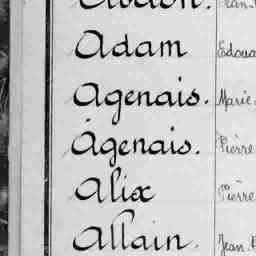 Adam Edoua
Agenais. Marie
Agenais. Pierre
Alix Pierre
Allain. Jean